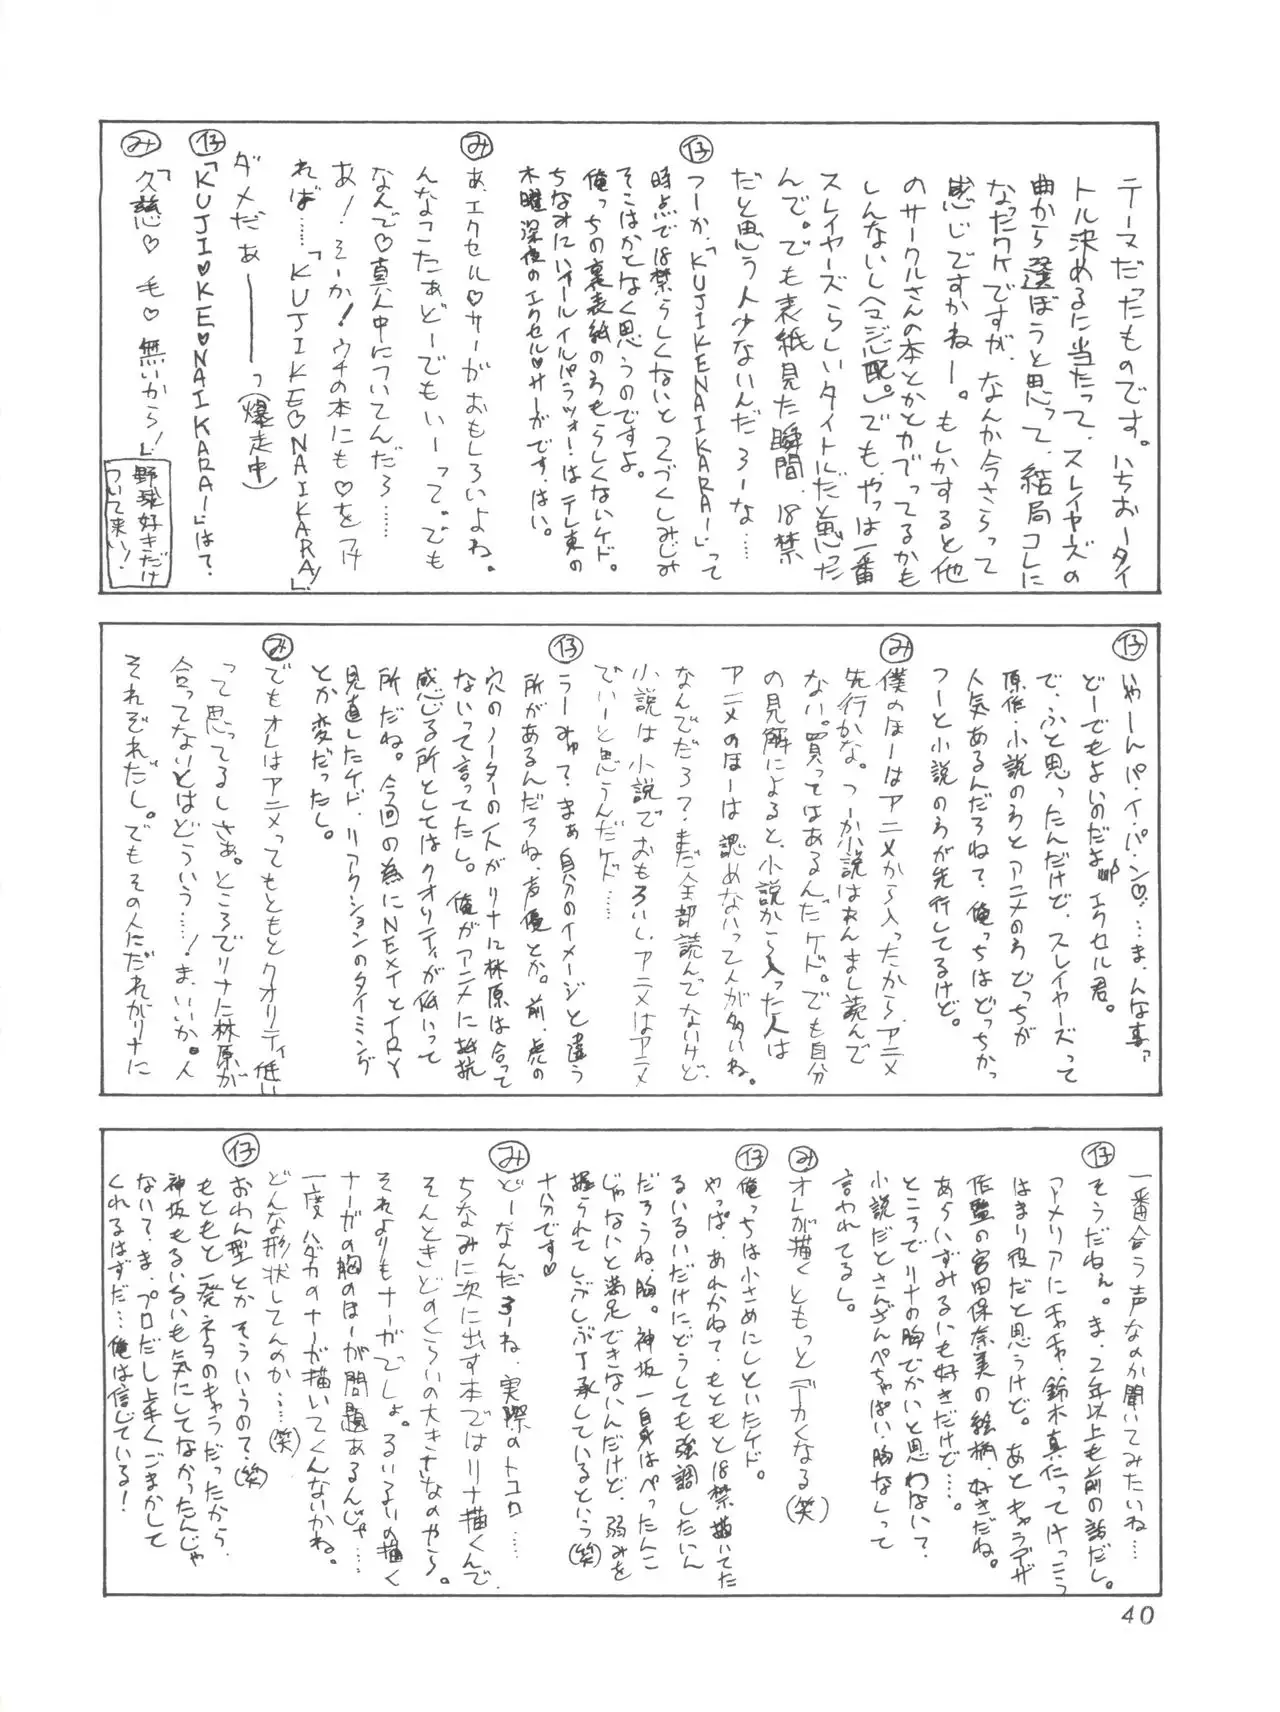 テーマだったものです。いちおータイ
トル決めるに当たって、スレイヤーズの
曲から選ぼうと思って、結局コレに
なったワケですが、なんか今さらって
感じですかねー。もしかすると他
のサークルさんの本とかとカブってるかも
しんないし(マジ心配。)でも、やっぱ一番
スレイヤーズらしいタイトルだと思った
んで。でも表紙見た瞬間、18禁
だと思う人少ないんだろーな……
㋑つーか、「KUJIKENAIKARA!」って
時点で18禁らしくないとつくづくしみじみ
そこはかとなく思うのですよ。
俺っちの裏表紙のろもらしくないケド。
ちなみにハィールイルパラッツォ!はテレ東の
木曜深夜のエクセル♡サーガです、はい。
み あ、エクセル♡サーガおもしろいよね。
んなこたぁどーでもいーって。でも
なんで♡真ん中についてんだろ……
あ!そーか!ウチの本にも♡をつけ
れば……「KUJIKE♡NAIKARA!」
ダメだぁ――――っ(爆走中)
仔「KUJI♡KE♡NAIKARA!」はて?
み「久慈♡毛♡無いから!」
野球好きだけ
ついて来い!
仔 いやーんパ・イ・パ・ン♡……ま、んな事ァ
どーでもよいのだよ エクセル君。
で、ふと思ったんだけど、スレイヤーズって
原作・小説のろとアニメのろ どっちが
人気あるんだろねで、俺っちはどっちかっ
つーと小説のろが先行してるけど。
み 僕のほーはアニメから入ったから、アニメ
先行かな。つーか小説はあんまし読んで
ない。買ってはあるんだケド。でも自分
の見解によると、小説から入った人は
アニメのほーは認めないって人が多いね。
なんでだろ?まだ全部読んでないけど、
小説は小説でおもろいし、アニメはアニメ
でいーと思うんだケド……
仔 うーみゅ?まぁ自分のイメージと違う
所があるんだろね、声優とか。前、虎の
穴のノーターの人がリナに林原は合って
ないって言ってたし。俺がアニメに抵抗
感じる所としてはクオリティが低いって
所だね。今回の為にNEXTとTRY
見直したケド、リアクションのタイミング
とか変だったし。
み でもオレはアニメってもともとクオリティ低い
って思ってるしさぁ。ところでリナに林原が
合ってないとはどういう……!ま、いいか。人
それぞれだし。でもその人にだれがリナに
一番合う声なのか聞いてみたいね……
仔 そうだねぇ。ま、2年以上も前の話だし。
アメリアにチャチャ・鈴木真仁ってけっこう
はまり役だと思うけど。あとキャラデザ
作監の宮田保奈美の絵柄、好きだね。
あらいずみるいも好きだけど…。
ところでリナの胸でかいと思わない?
小説だとさんざんぺちゃぱい・胸なしって
言われてるし。
み オレが描くともっとデーカくなる(笑)
仔 俺っちは小さめにしといたケド。
やっぱ、あれかねで、もともと18禁描いてた
るいるいだけに、どうしても強調したいん
だろうね、胸。神坂一自身はぺったんこ
じゃないと満足できないんだけど、弱みを
握られてしぶしぶ了承しているという(笑)
十八分です♡
み どーなんだろーね、実際のトコロ……
ちなみに次に出す本ではリナ描くんで
そんときどのくらいの大きさなのやら。
それよりもナーガでしょ。るいるいの描く
ナーガの胸のほーが問題あるんじゃ……
一度、ハダカのナーガ描いてくんないかね。
どんな形状してんのか……(笑)
仔 おわん型とかそういうので?(笑)
もともと一発ネタのキャラだったから、
神坂もるいるいも気にしてなかったんじゃ
ない?ま、プロだし上手くごまかして
くれるはずだ…俺は信じている!
40